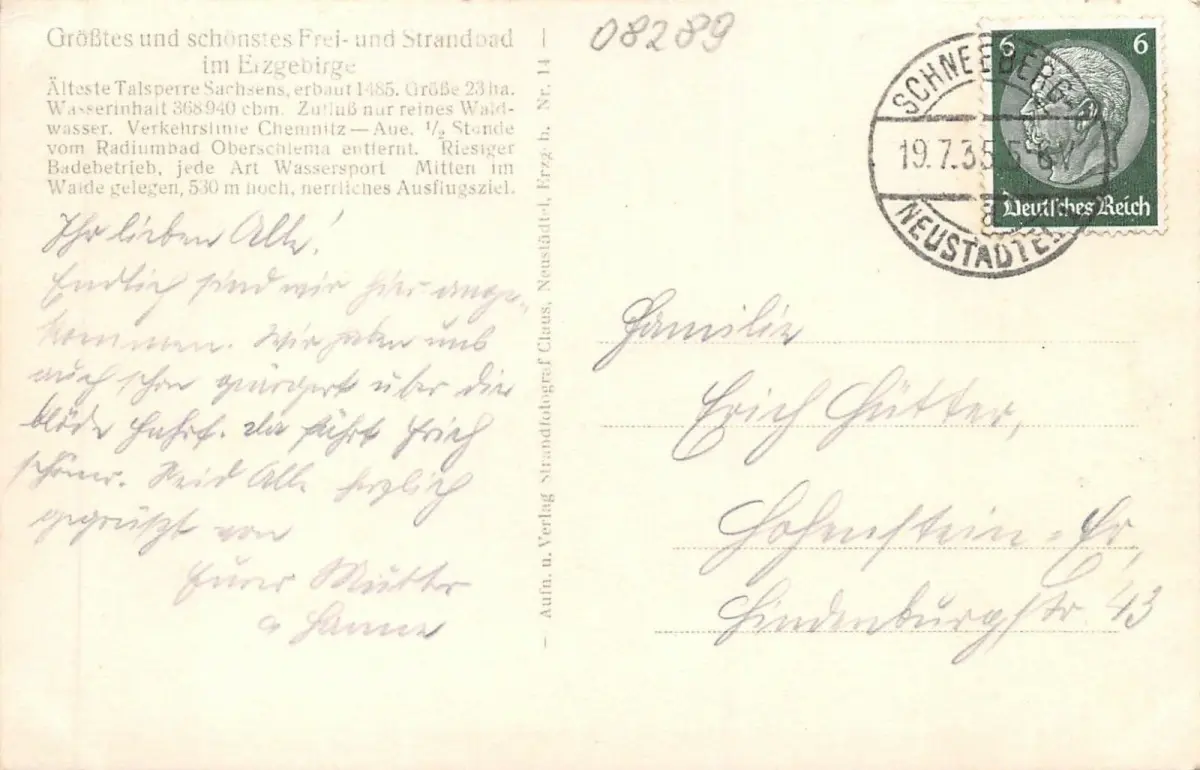 Größtes und schönstes Frei- und Strandbad
im Erzgebirge
Älteste Talsperre Sachsens, erbaut 1485. Größe 23 ha.
Wasserinhalt 368940 cbm. Zufluß nur reines Wald-
wasser. Verkehrslinie Chemnitz—Aue. ½ Stunde
vom Radiumbad Oberschlema entfernt. Riesiger
Badebetrieb, jede Art Wassersport Mitten im
Walde gelegen, 530 m hoch, herrliches Ausflugsziel.
Ihr lieben Alle!
Endlich sind wir hier ange-
kommen. Wir haben uns
auch schon geärgert über die
blöde Fahrt. Da fährt Erich
schöner. Seid Alle herzlich
gegrüßt von
Eurer Mutter
u Hanne
— Aufn. u. Verlag Strandfotograf Claus, Neustädtel, Erzgeb. Nr. 14 —
08289
SCHNEEBERG-
19.7.35.5-6
NEUSTÄDTEL
6 6
Deutsches Reich
Familie
Erich Hütter,
Hohenstein-Er,
Hindenburgstr 43